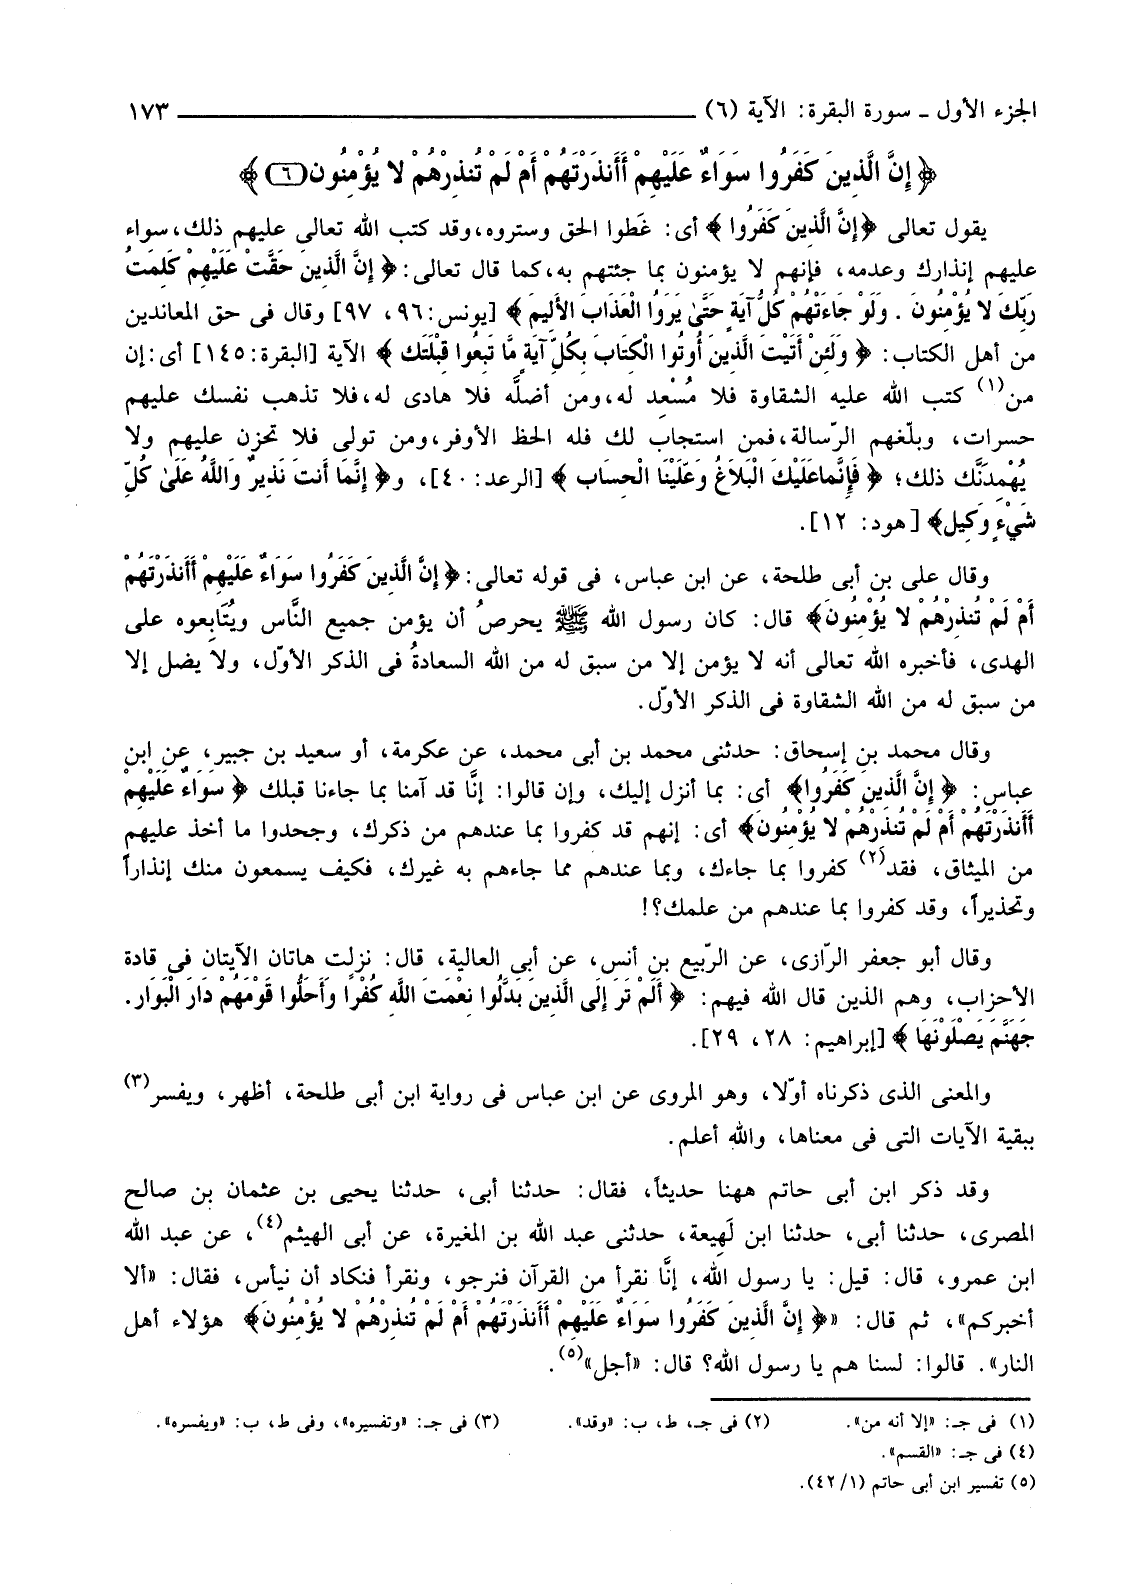 الجزء الأول ـ سورة البقرة: الآية (٦) ١٧٣
﴿ إِنَّ الَّذِينَ كَفَرُوا سَوَاءٌ عَلَيْهِمْ أَأَنذَرْتَهُمْ أَمْ لَمْ تُنذِرْهُمْ لا يُؤْمِنُونَ (٦) ﴾
يقول تعالى ﴿ إِنَّ الَّذِينَ كَفَرُوا ﴾ أى: غَطوا الحق وستروه، وقد كتب الله تعالى عليهم ذلك، سواء
عليهم إنذارك وعدمه، فإنهم لا يؤمنون بما جئتهم به، كما قال تعالى: ﴿ إِنَّ الَّذِينَ حَقَّتْ عَلَيْهِمْ كَلِمَتُ
رَبِّكَ لا يُؤْمِنُونَ . وَلَوْ جَاءَتْهُمْ كُلُّ آيَةٍ حَتَّىٰ يَرَوُا الْعَذَابَ الأَلِيمَ ﴾ [يونس: ٩٦، ٩٧] وقال فى حق المعاندين
من أهل الكتاب: ﴿ وَلَئِنْ أَتَيْتَ الَّذِينَ أُوتُوا الْكِتَابَ بِكُلِّ آيَةٍ مَّا تَبِعُوا قِبْلَتَكَ ﴾ الآية [البقرة: ١٤٥] أى: إن
من(١) كتب الله عليه الشقاوة فلا مُسْعِد له، ومن أضلَّه فلا هادى له، فلا تذهب نفسك عليهم
حسرات، وبلّغهم الرّسالة، فمن استجاب لك فله الحظ الأوفر، ومن تولى فلا تحزن عليهم ولا
يُهْمِدَنَّك ذلك؛ ﴿ فَإِنَّمَا عَلَيْكَ الْبَلاغُ وَعَلَيْنَا الْحِسَاب ﴾ [الرعد: ٤٠]، و﴿ إِنَّمَا أَنتَ نَذِيرٌ وَاللَّهُ عَلَىٰ كُلِّ
شَيْءٍ وَكِيل ﴾ [هود: ١٢].
وقال على بن أبى طلحة، عن ابن عباس، فى قوله تعالى: ﴿ إِنَّ الَّذِينَ كَفَرُوا سَوَاءٌ عَلَيْهِمْ أَأَنذَرْتَهُمْ
أَمْ لَمْ تُنذِرْهُمْ لا يُؤْمِنُونَ ﴾ قال: كان رسول الله ﷺ يحرصُ أن يؤمن جميع النَّاس ويُتَابِعوه على
الهدى، فأخبره الله تعالى أنه لا يؤمن إلا من سبق له من الله السعادةُ فى الذكر الأوّل، ولا يضل إلا
من سبق له من الله الشقاوة فى الذكر الأوّل.
وقال محمد بن إسحاق: حدثنى محمد بن أبى محمد، عن عكرمة، أو سعيد بن جبير، عن ابن
عباس: ﴿ إِنَّ الَّذِينَ كَفَرُوا ﴾ أى: بما أنزل إليك، وإن قالوا: إنَّا قد آمنا بما جاءنا قبلك ﴿ سَوَاءٌ عَلَيْهِمْ
أَأَنذَرْتَهُمْ أَمْ لَمْ تُنذِرْهُمْ لا يُؤْمِنُونَ ﴾ أى: إنهم قد كفروا بما عندهم من ذكرك، وجحدوا ما أخذ عليهم
من الميثاق، فقد(٢) كفروا بما جاءك، وبما عندهم مما جاءهم به غيرك، فكيف يسمعون منك إنذاراً
وتحذيراً، وقد كفروا بما عندهم من علمك؟!
وقال أبو جعفر الرّازى، عن الرّبيع بن أنس، عن أبى العالية، قال: نزلت هاتان الآيتان فى قادة
الأحزاب، وهم الذين قال الله فيهم: ﴿ أَلَمْ تَرَ إِلَى الَّذِينَ بَدَّلُوا نِعْمَتَ اللَّهِ كُفْرًا وَأَحَلُّوا قَوْمَهُمْ دَارَ الْبَوَارِ .
جَهَنَّمَ يَصْلَوْنَهَا ﴾ [إبراهيم: ٢٨، ٢٩].
والمعنى الذى ذكرناه أوّلا، وهو المروى عن ابن عباس فى رواية ابن أبى طلحة، أظهر، ويفسر(٣)
ببقية الآيات التى فى معناها، والله أعلم.
وقد ذكر ابن أبى حاتم ههنا حديثاً، فقال: حدثنا أبى، حدثنا يحيى بن عثمان بن صالح
المصرى، حدثنا أبى، حدثنا ابن لَهِيعة، حدثنى عبد الله بن المغيرة، عن أبى الهيثم(٤)، عن عبد الله
ابن عمرو، قال: قيل: يا رسول الله، إنَّا نقرأ من القرآن فنرجو، ونقرأ فنكاد أن نيأس، فقال: «ألا
أخبركم»، ثم قال: «﴿ إِنَّ الَّذِينَ كَفَرُوا سَوَاءٌ عَلَيْهِمْ أَأَنذَرْتَهُمْ أَمْ لَمْ تُنذِرْهُمْ لا يُؤْمِنُونَ ﴾ هؤلاء أهل
النار». قالوا: لسنا هم يا رسول الله؟ قال: «أجل»(٥).
(١) فى جـ: «إلا أنه من». (٢) فى جـ، ط، ب: «وقد». (٣) فى جـ: «وتفسيره»، وفى ط، ب: «ويفسره».
(٤) فى جـ: «القسم».
(٥) تفسير ابن أبى حاتم (١/ ٤٢).